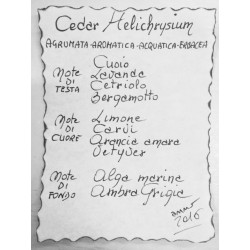 Cedar Helichrysium
AGRUMATA-AROMATICA-ACQUATICA-ERBACEA
Note DI TESTA
Cuoio
Lavanda
Cetriolo
Bergamotto
Note DI CUORE
Limone
Carvi
Arancia amara
Vetyver
Note DI FONDO
Alga marina
Ambra Grigia
anno 2016